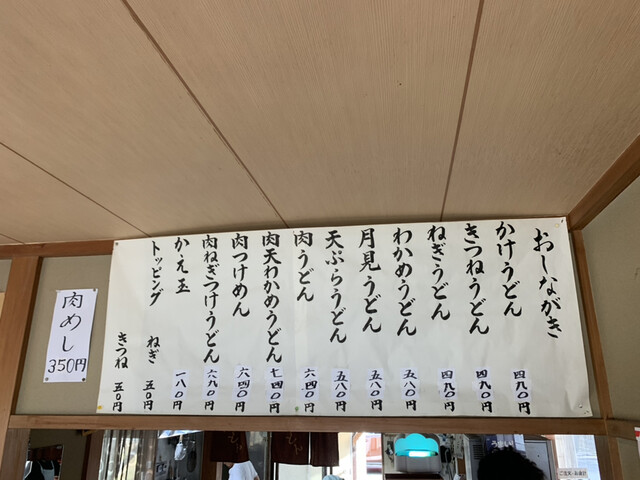 おしながき
かけうどん 四九〇円
きつねうどん 四九〇円
ねぎうどん 四九〇円
わかめうどん 五八〇円
月見うどん 五八〇円
天ぷらうどん 五八〇円
肉うどん 六四〇円
肉天わかめうどん 七四〇円
肉つけめん 六四〇円
肉ねぎつけうどん 六九〇円
かえ玉 一八〇円
トッピング ねぎ 五〇円
きつね 五〇円
肉めし
350円